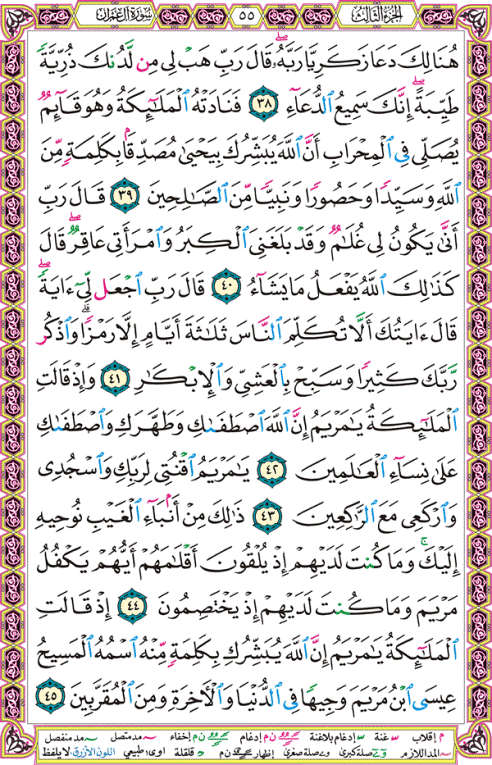 الجزء الثالث ٥٥ سورة آل عمران
هُنَالِكَ دَعَا زَكَرِيَّا رَبَّهُۥ قَالَ رَبِّ هَبْ لِى مِن لَّدُنكَ ذُرِّيَّةً
طَيِّبَةً إِنَّكَ سَمِيعُ ٱلدُّعَآءِ ٣٨ فَنَادَتْهُ ٱلْمَلَٰٓئِكَةُ وَهُوَ قَآئِمٌ
يُصَلِّى فِى ٱلْمِحْرَابِ أَنَّ ٱللَّهَ يُبَشِّرُكَ بِيَحْيَىٰ مُصَدِّقًۢا بِكَلِمَةٍ مِّنَ
ٱللَّهِ وَسَيِّدًا وَحَصُورًا وَنَبِيًّا مِّنَ ٱلصَّٰلِحِينَ ٣٩ قَالَ رَبِّ
أَنَّىٰ يَكُونُ لِى غُلَٰمٌ وَقَدْ بَلَغَنِىَ ٱلْكِبَرُ وَٱمْرَأَتِى عَاقِرٌ قَالَ
كَذَٰلِكَ ٱللَّهُ يَفْعَلُ مَا يَشَآءُ ٤٠ قَالَ رَبِّ ٱجْعَل لِّىٓ ءَايَةً
قَالَ ءَايَتُكَ أَلَّا تُكَلِّمَ ٱلنَّاسَ ثَلَٰثَةَ أَيَّامٍ إِلَّا رَمْزًا وَٱذْكُر
رَّبَّكَ كَثِيرًا وَسَبِّحْ بِٱلْعَشِىِّ وَٱلْإِبْكَٰرِ ٤١ وَإِذْ قَالَتِ
ٱلْمَلَٰٓئِكَةُ يَٰمَرْيَمُ إِنَّ ٱللَّهَ ٱصْطَفَىٰكِ وَطَهَّرَكِ وَٱصْطَفَىٰكِ
عَلَىٰ نِسَآءِ ٱلْعَٰلَمِينَ ٤٢ يَٰمَرْيَمُ ٱقْنُتِى لِرَبِّكِ وَٱسْجُدِى
وَٱرْكَعِى مَعَ ٱلرَّٰكِعِينَ ٤٣ ذَٰلِكَ مِنْ أَنۢبَآءِ ٱلْغَيْبِ نُوحِيهِ
إِلَيْكَ وَمَا كُنتَ لَدَيْهِمْ إِذْ يُلْقُونَ أَقْلَٰمَهُمْ أَيُّهُمْ يَكْفُلُ
مَرْيَمَ وَمَا كُنتَ لَدَيْهِمْ إِذْ يَخْتَصِمُونَ ٤٤ إِذْ قَالَتِ
ٱلْمَلَٰٓئِكَةُ يَٰمَرْيَمُ إِنَّ ٱللَّهَ يُبَشِّرُكِ بِكَلِمَةٍ مِّنْهُ ٱسْمُهُ ٱلْمَسِيحُ
عِيسَى ٱبْنُ مَرْيَمَ وَجِيهًا فِى ٱلدُّنْيَا وَٱلْءَاخِرَةِ وَمِنَ ٱلْمُقَرَّبِينَ ٤٥
م إقلاب غنة إدغام بلاغنة ن م إدغام ن م إخفاء مد متصل مد منفصل
المد اللازم وے صلة كبرى وے صلة صغرى إظهار ن م قلقلة اوى: طبيعي اللون الأزرق: لا يلفظ